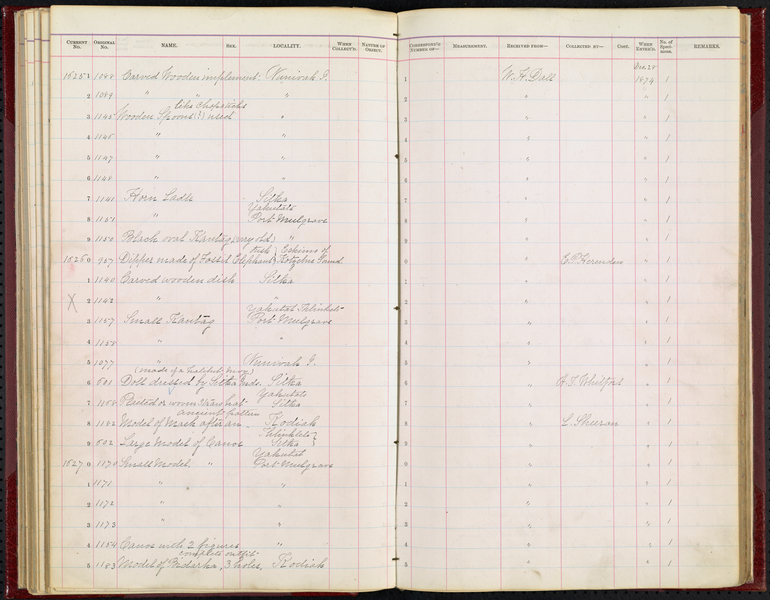 CURRENT No. ORIGINAL No. NAME. SEX. LOCALITY. WHEN COLLECT'D. NATURE OF OBJECT. CORRESPOND'G NUMBER OF— MEASUREMENT. RECEIVED FROM— COLLECTED BY— COST. WHEN ENTER'D. No. of Speci-mens. REMARKS.
Dec. 28
15252 1088 Carved Wooden implement. Nunivak I. 1 W. H. Dall 1874 1
2 1089 " " " 2 " " 1
like chopsticks
3 1145 Wooden Spoons (?) used " 3 " " 1
4 1145 " " 4 " " 1
5 1147 " " 5 " " 1
6 1148 " " 6 " " 1
7 1141 Horn Ladle Sitka 7 " " 1
Yakutats
8 1151 " Port Mulgrave 8 " " 1
9 1150 Black oval Kantag (very old) " 9 " " 1
tusk } Eskimo of
15260 987 Dipper made of Fossil Elephant } Kotzebue Sound 0 " E. P. Herenden " 1
1 1140 Carved wooden dish Sitka 1 " " 1
X 2 1142 " " 2 " " 1
Yakutat Thlinkets
3 1157 Small Kantag Port Mulgrave 3 " " 1
4 1158 " " 4 " " 1
5 1077 " Nunivak I. 5 " " 1
6 601 Doll dressed by Sitka Inds. Sitka 6 " H. T. Whilford " 1
Yakutats
7 1156 Plaited or woven straw hat Sitka 7 " " 1
ancient pattern
8 1182 Model of Mask after an Kodiak 8 " L. Sheeran " 1
Thlinklets }
9 602 Large Model of Canoe Sitka } 9 " " 1
Yakutat
15270 1170 Small Model " Port Mulgrave 0 " " 1
1 1171 " " 1 " " 1
2 1172 " " 2 " " 1
3 1173 " " 3 " " 1
4 1154 Canoe with 2 figures " 4 " " 1
complete outfit
5 1183 Model of Bidarka, 3 holes, Kodiak 5 " " 1